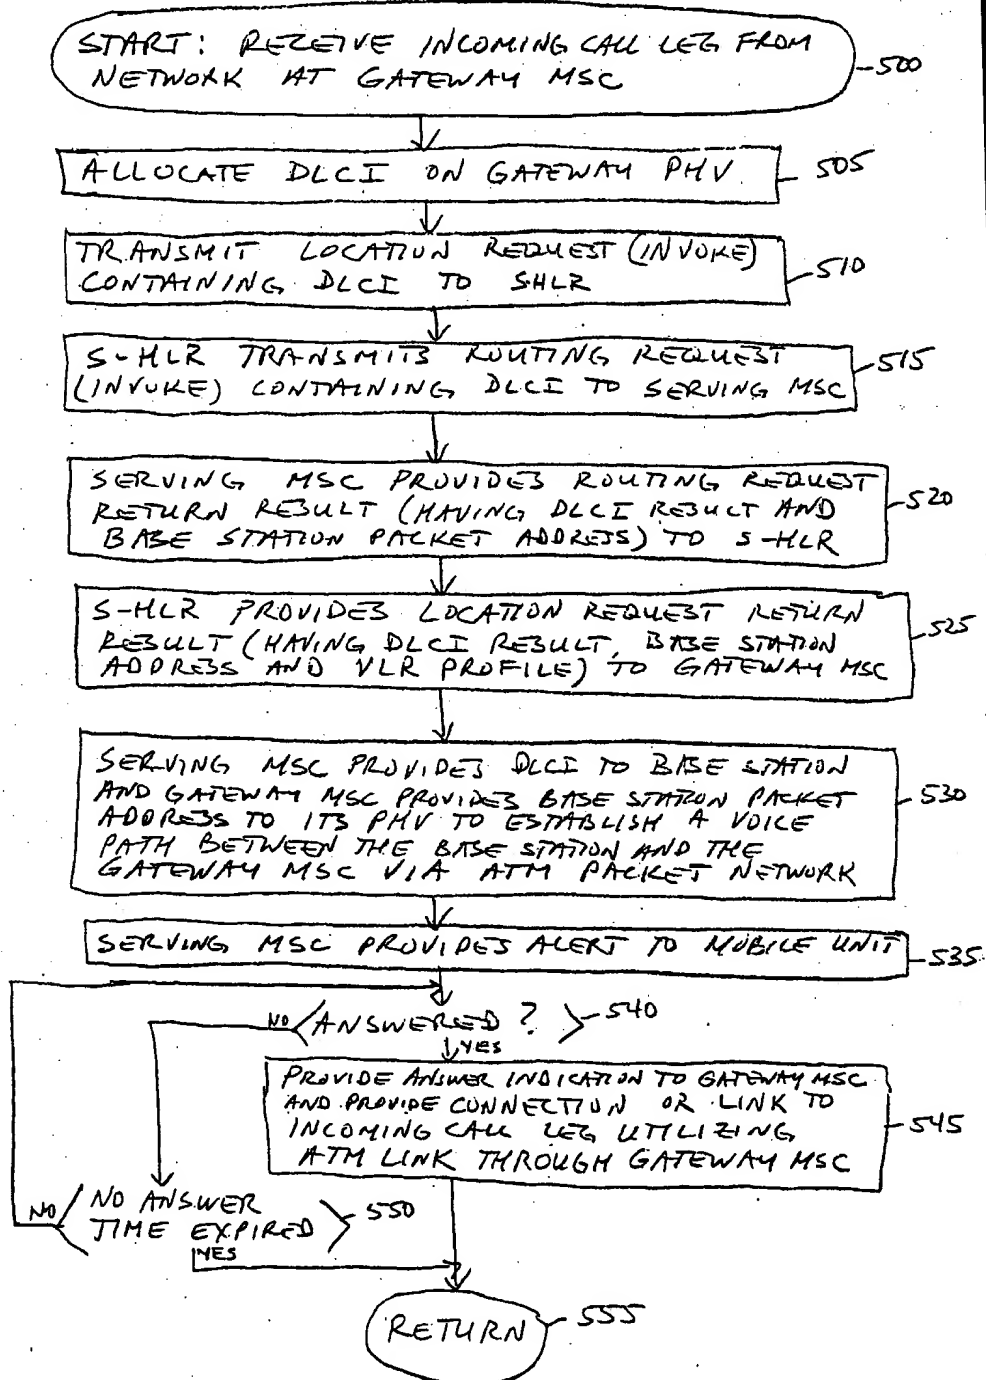 START: RECEIVE INCOMING CALL LEG FROM
NETWORK AT GATEWAY MSC
500
ALLOCATE DLCI ON GATEWAY PHV
505
TRANSMIT LOCATION REQUEST (INVOKE)
CONTAINING DLCI TO SHLR
510
S-HLR TRANSMITS ROUTING REQUEST
(INVOKE) CONTAINING DLCI TO SERVING MSC
515
SERVING MSC PROVIDES ROUTING REQUEST
RETURN RESULT (HAVING DLCI RESULT AND
BASE STATION PACKET ADDRESS) TO S-HLR
520
S-HLR PROVIDES LOCATION REQUEST RETURN
RESULT (HAVING DLCI RESULT, BASE STATION
ADDRESS AND VLR PROFILE) TO GATEWAY MSC
525
SERVING MSC PROVIDES DLCI TO BASE STATION
AND GATEWAY MSC PROVIDES BASE STATION PACKET
ADDRESS TO ITS PHV TO ESTABLISH A VOICE
PATH BETWEEN THE BASE STATION AND THE
GATEWAY MSC VIA ATM PACKET NETWORK
530
SERVING MSC PROVIDES ALERT TO MOBILE UNIT
535
NO ANSWERED? 540
YES
PROVIDE ANSWER INDICATION TO GATEWAY MSC
AND PROVIDE CONNECTION OR LINK TO
INCOMING CALL LEG UTILIZING
ATM LINK THROUGH GATEWAY MSC
545
NO
NO ANSWER
TIME EXPIRED
550
YES
RETURN
555